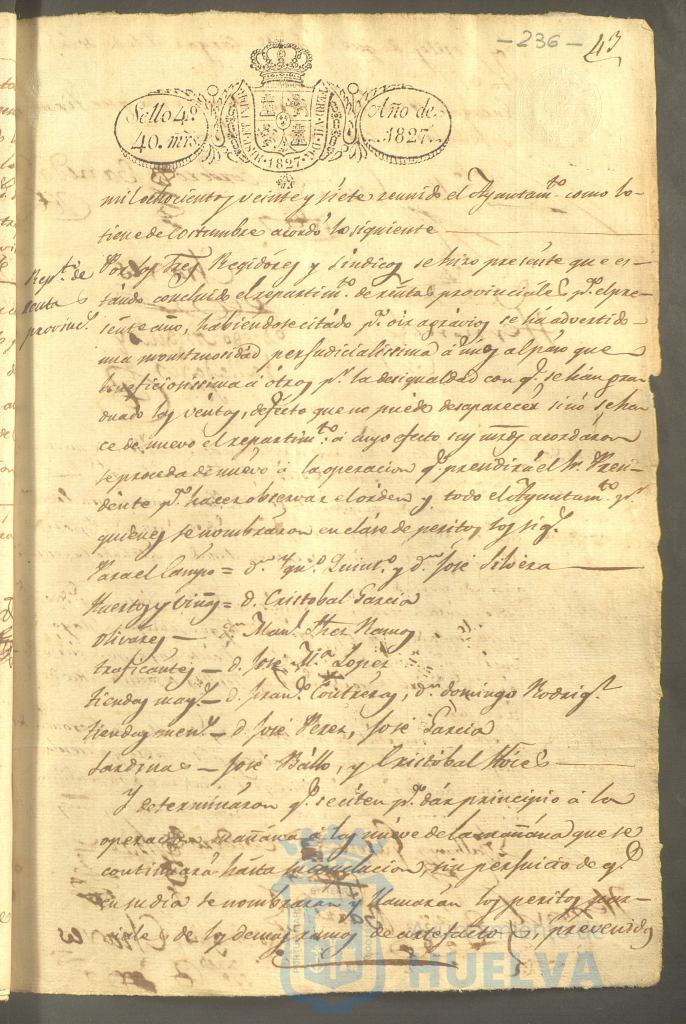 - 236 -
43
Sello 4º
40. mrs
Año de
1827.
HISP. ET IND. R
1827
mil ochocientos veinte y siete reunido el Ayuntam.to como lo
tiene de costumbre acordó lo siguiente
Rep.to de
renta s
provinc.s
Por los Sres Regidores y Sindicos se hizo presente que es-
tando concluido el repartim.to de rentas provinciales p.a el pre-
sente año, habiendose citado p.a oir agravios se ha advertido
una monstruosidad perjudicialissima á unos al paso que
beneficiosissima á otros p.r la desigualdad con q.e se han gra-
duado los ventos, defecto que no puede desaparecer sinó se ha-
ce de nuevo el repartim.to á cuyo efecto sus mrds acordaron
se proceda de nuevo á la operacion q.e prendirá el Sr. Presi-
dente p.a hacer observar el orden y todo el Ayuntam.to p.r
quienes se nombraron en clase de peritos los sig.s
Para el Campo = d.n Quint.o y d.n José Silvera
Huertos y viñas = d. Cristobal Garcia
Olivares — Man.l Ramos
traficantes — d. José M.a Lopez
tiendas may.s — d. Fran.co Contreras, d.n domingo Rodrig.z
tiendas men.s — d. José Perez, José Garcia
Sardina s — José Bállo, y Cristóbal
Y determináron q.e se citen p.a dár principio á la
operacion mañana á las nueve de la mañana que se
continuará hasta su conclucion, sin perjuicio de q.e
en su dia se nombrarán y llamarán los peritos
de los demas ramos de artefactos, prevenidos
HUELVA